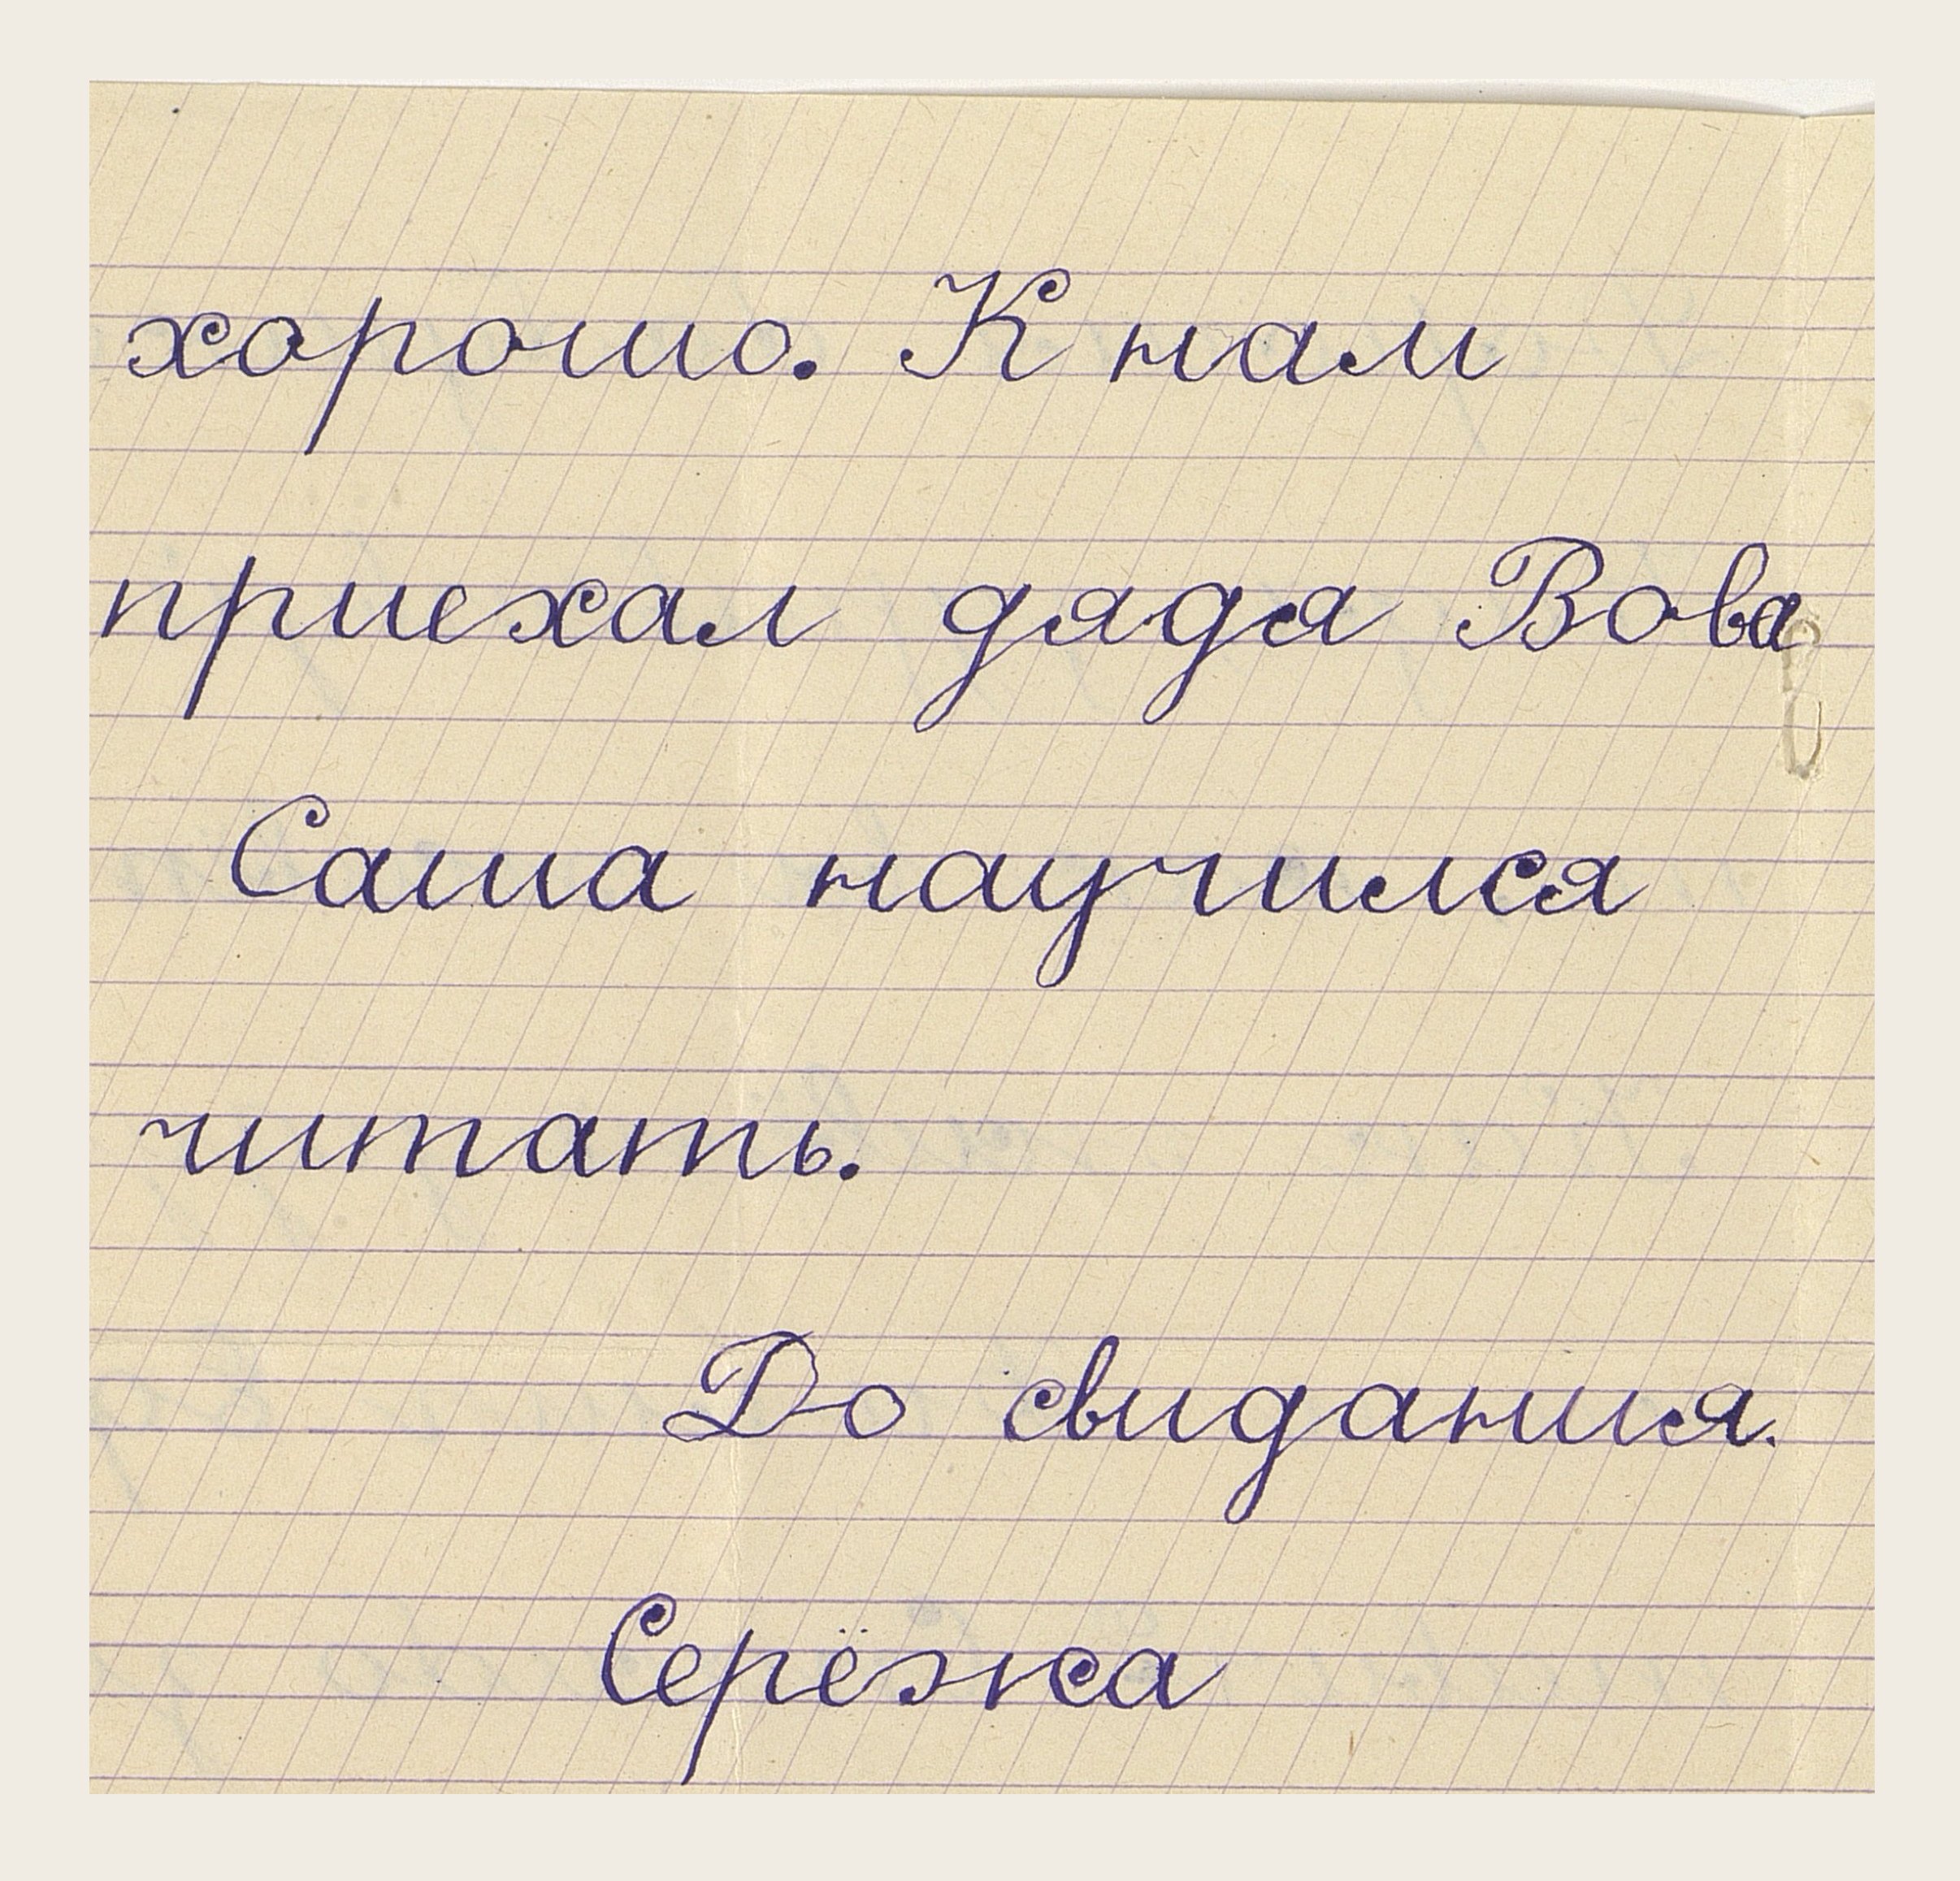 хорошо. К нам
приехал дядя Вова
Саша научился
читать.
До свидания.
Серёжа